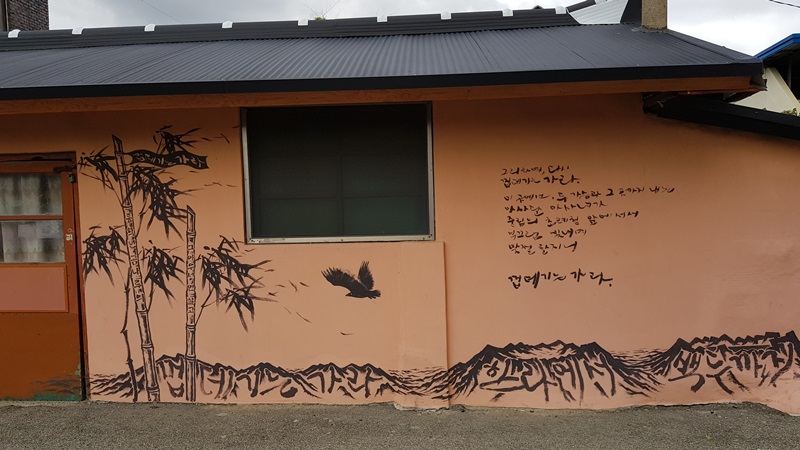 그리하여, 다시
껍데기는 가라.
이 곳에선, 두 가슴과 그 곳까지 내논
아사달 아사녀가
중립의 초례청 앞에 서서
부끄럼 빛내며
맞절할지니
껍데기는 가라.
껍데기는 가라 한라에서 백두까지